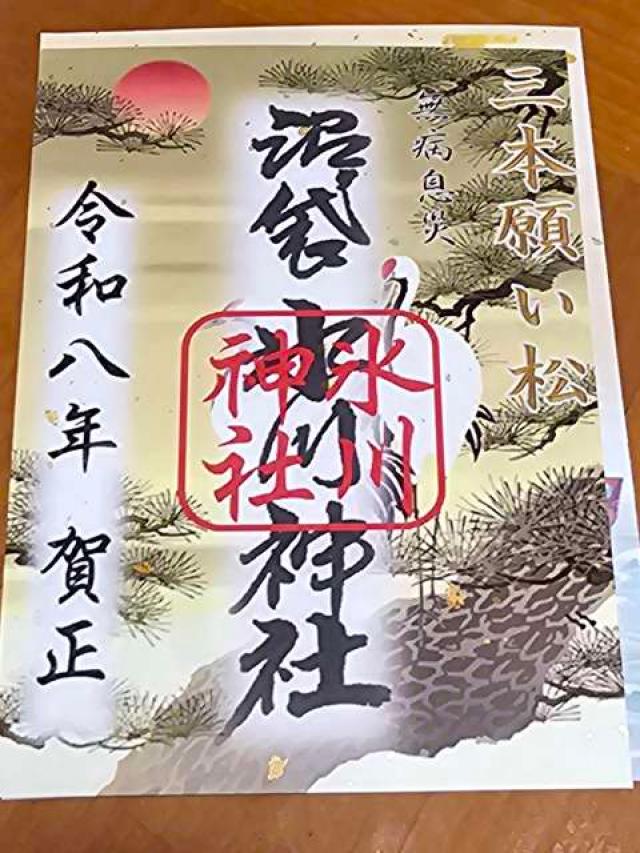 三本願い松
無病息災
沼袋氷川神社
氷川
神社
令和八年 賀正